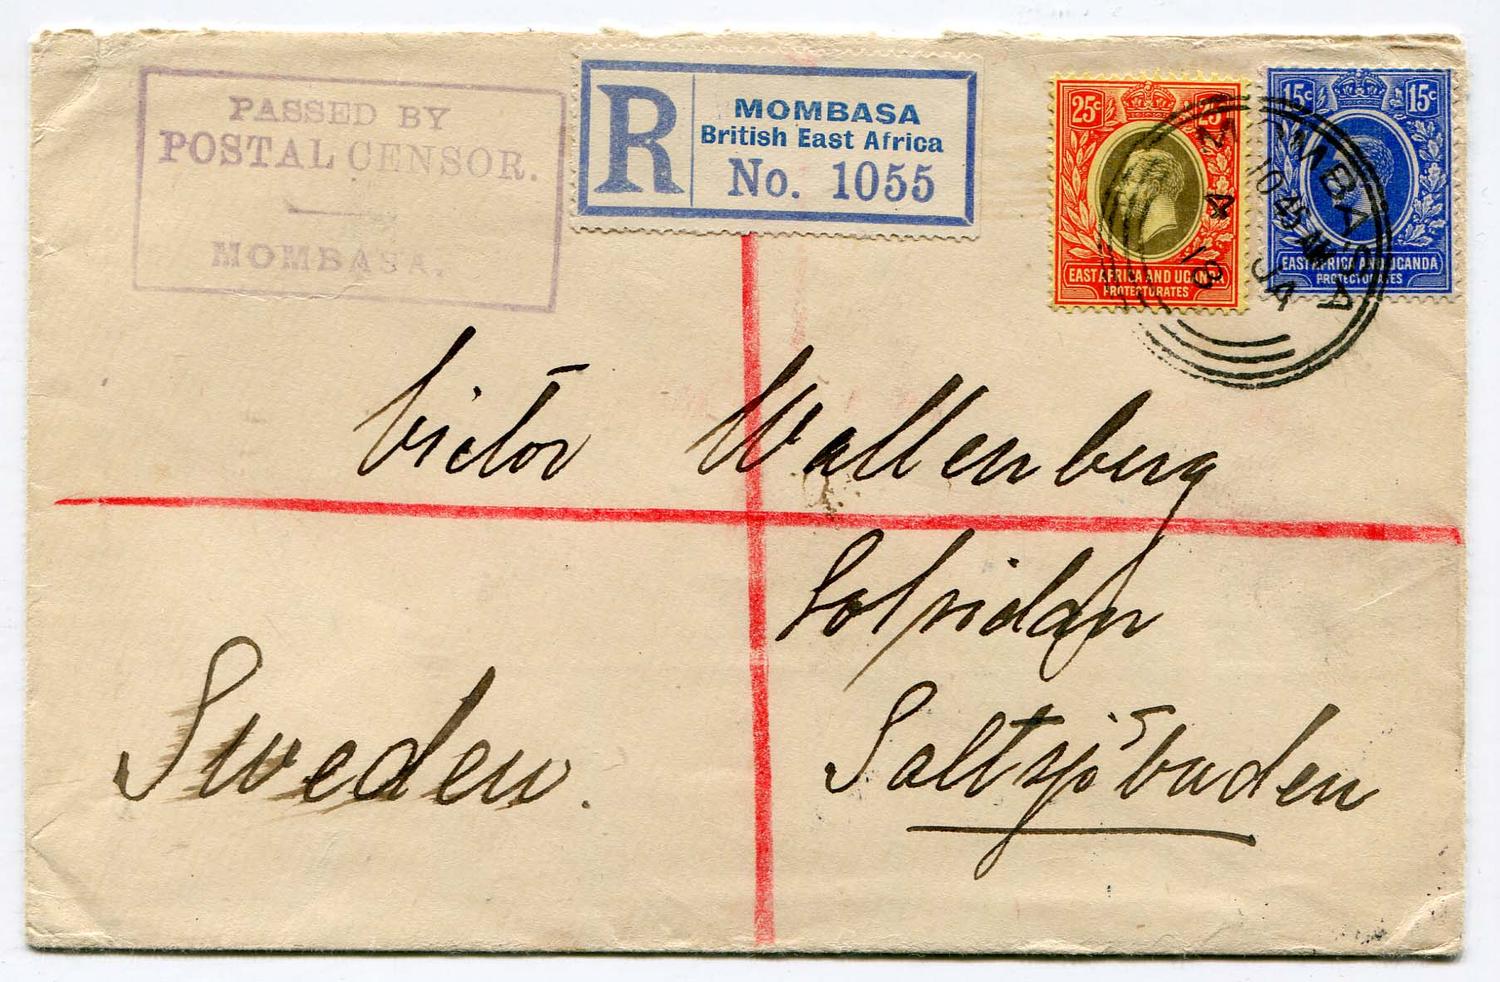 PASSED BY
POSTAL CENSOR.
MOMBASA.
R
MOMBASA
British East Africa
No. 1055
25c 25c
EAST AFRICA AND UGANDA
PROTECTORATES
15c 15c
EAST AFRICA AND UGANDA
PROTECTORATES
MOMBASA
10 45 AM
4 JA
18
Victor Wallenberg
Solsidan
Saltsjöbaden
Sweden.